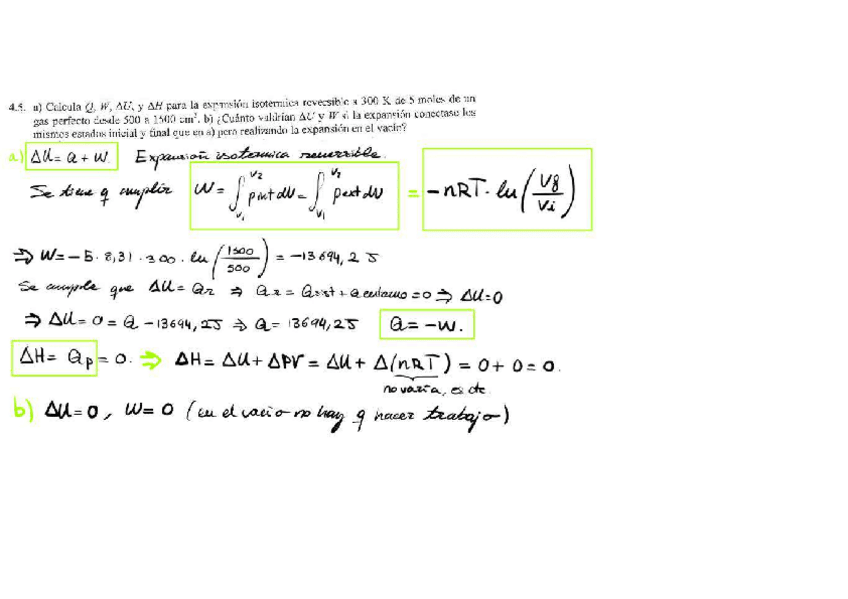 4.5. a) Calcula Q, W, ΔU, y ΔH para la expansión isotermica reversible a 300 K de 5 moles de un
gas perfecto desde 500 a 1500 cm³. b) ¿Cuánto valdrían ΔU y W si la expansión conectase los
mismos estados inicial y final que en a) pero realizando la expansión en el vacío?
a) ΔU = Q + W. Expansión isotermica reversible.
Se tiene q cumplir W = ∫_{V₁}^{V₂} Pint dV = ∫_{V₁}^{V₂} Pext dV = -nRT · ln(Vf/Vi)
⇒ W = -5 · 8,31 · 300 · ln(1500/500) = -13694,25
Se cumple que ΔU = QR ⇒ QR = Qsist + Qentorno = 0 ⇒ ΔU = 0
⇒ ΔU = 0 = Q - 13694,25 ⇒ Q = 13694,25 Q = -W.
ΔH = Qp = 0. ⇒ ΔH = ΔU + ΔPV = ΔU + Δ(nRT) = 0 + 0 = 0.
no varía, es cte
b) ΔU = 0, W = 0 (en el vacío no hay q hacer trabajo)